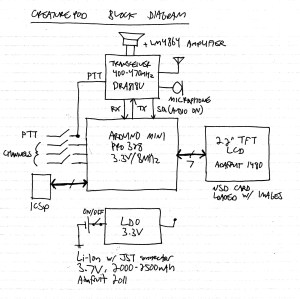 CREATURE400 BLOCK DIAGRAM
+ LM4864 AMPLIFIER
TRANSCEIVER
400-470MHz
DRA818U
PTT
MICROPHONE
RX
TX
SQ (AUDIO ON)
PTT
CHANNELS
ARDUINO MINI
PRO 328
3.3V/8MHz
7
2.2" TFT
LCD
ADAFRUIT 1480
ICSP
μSD CARD
LOADED W/ IMAGES
ON/OFF
LDO
3.3V
Li-Ion w/ JST connector
3.7V, 2000-2500mAh
Adafruit 2011